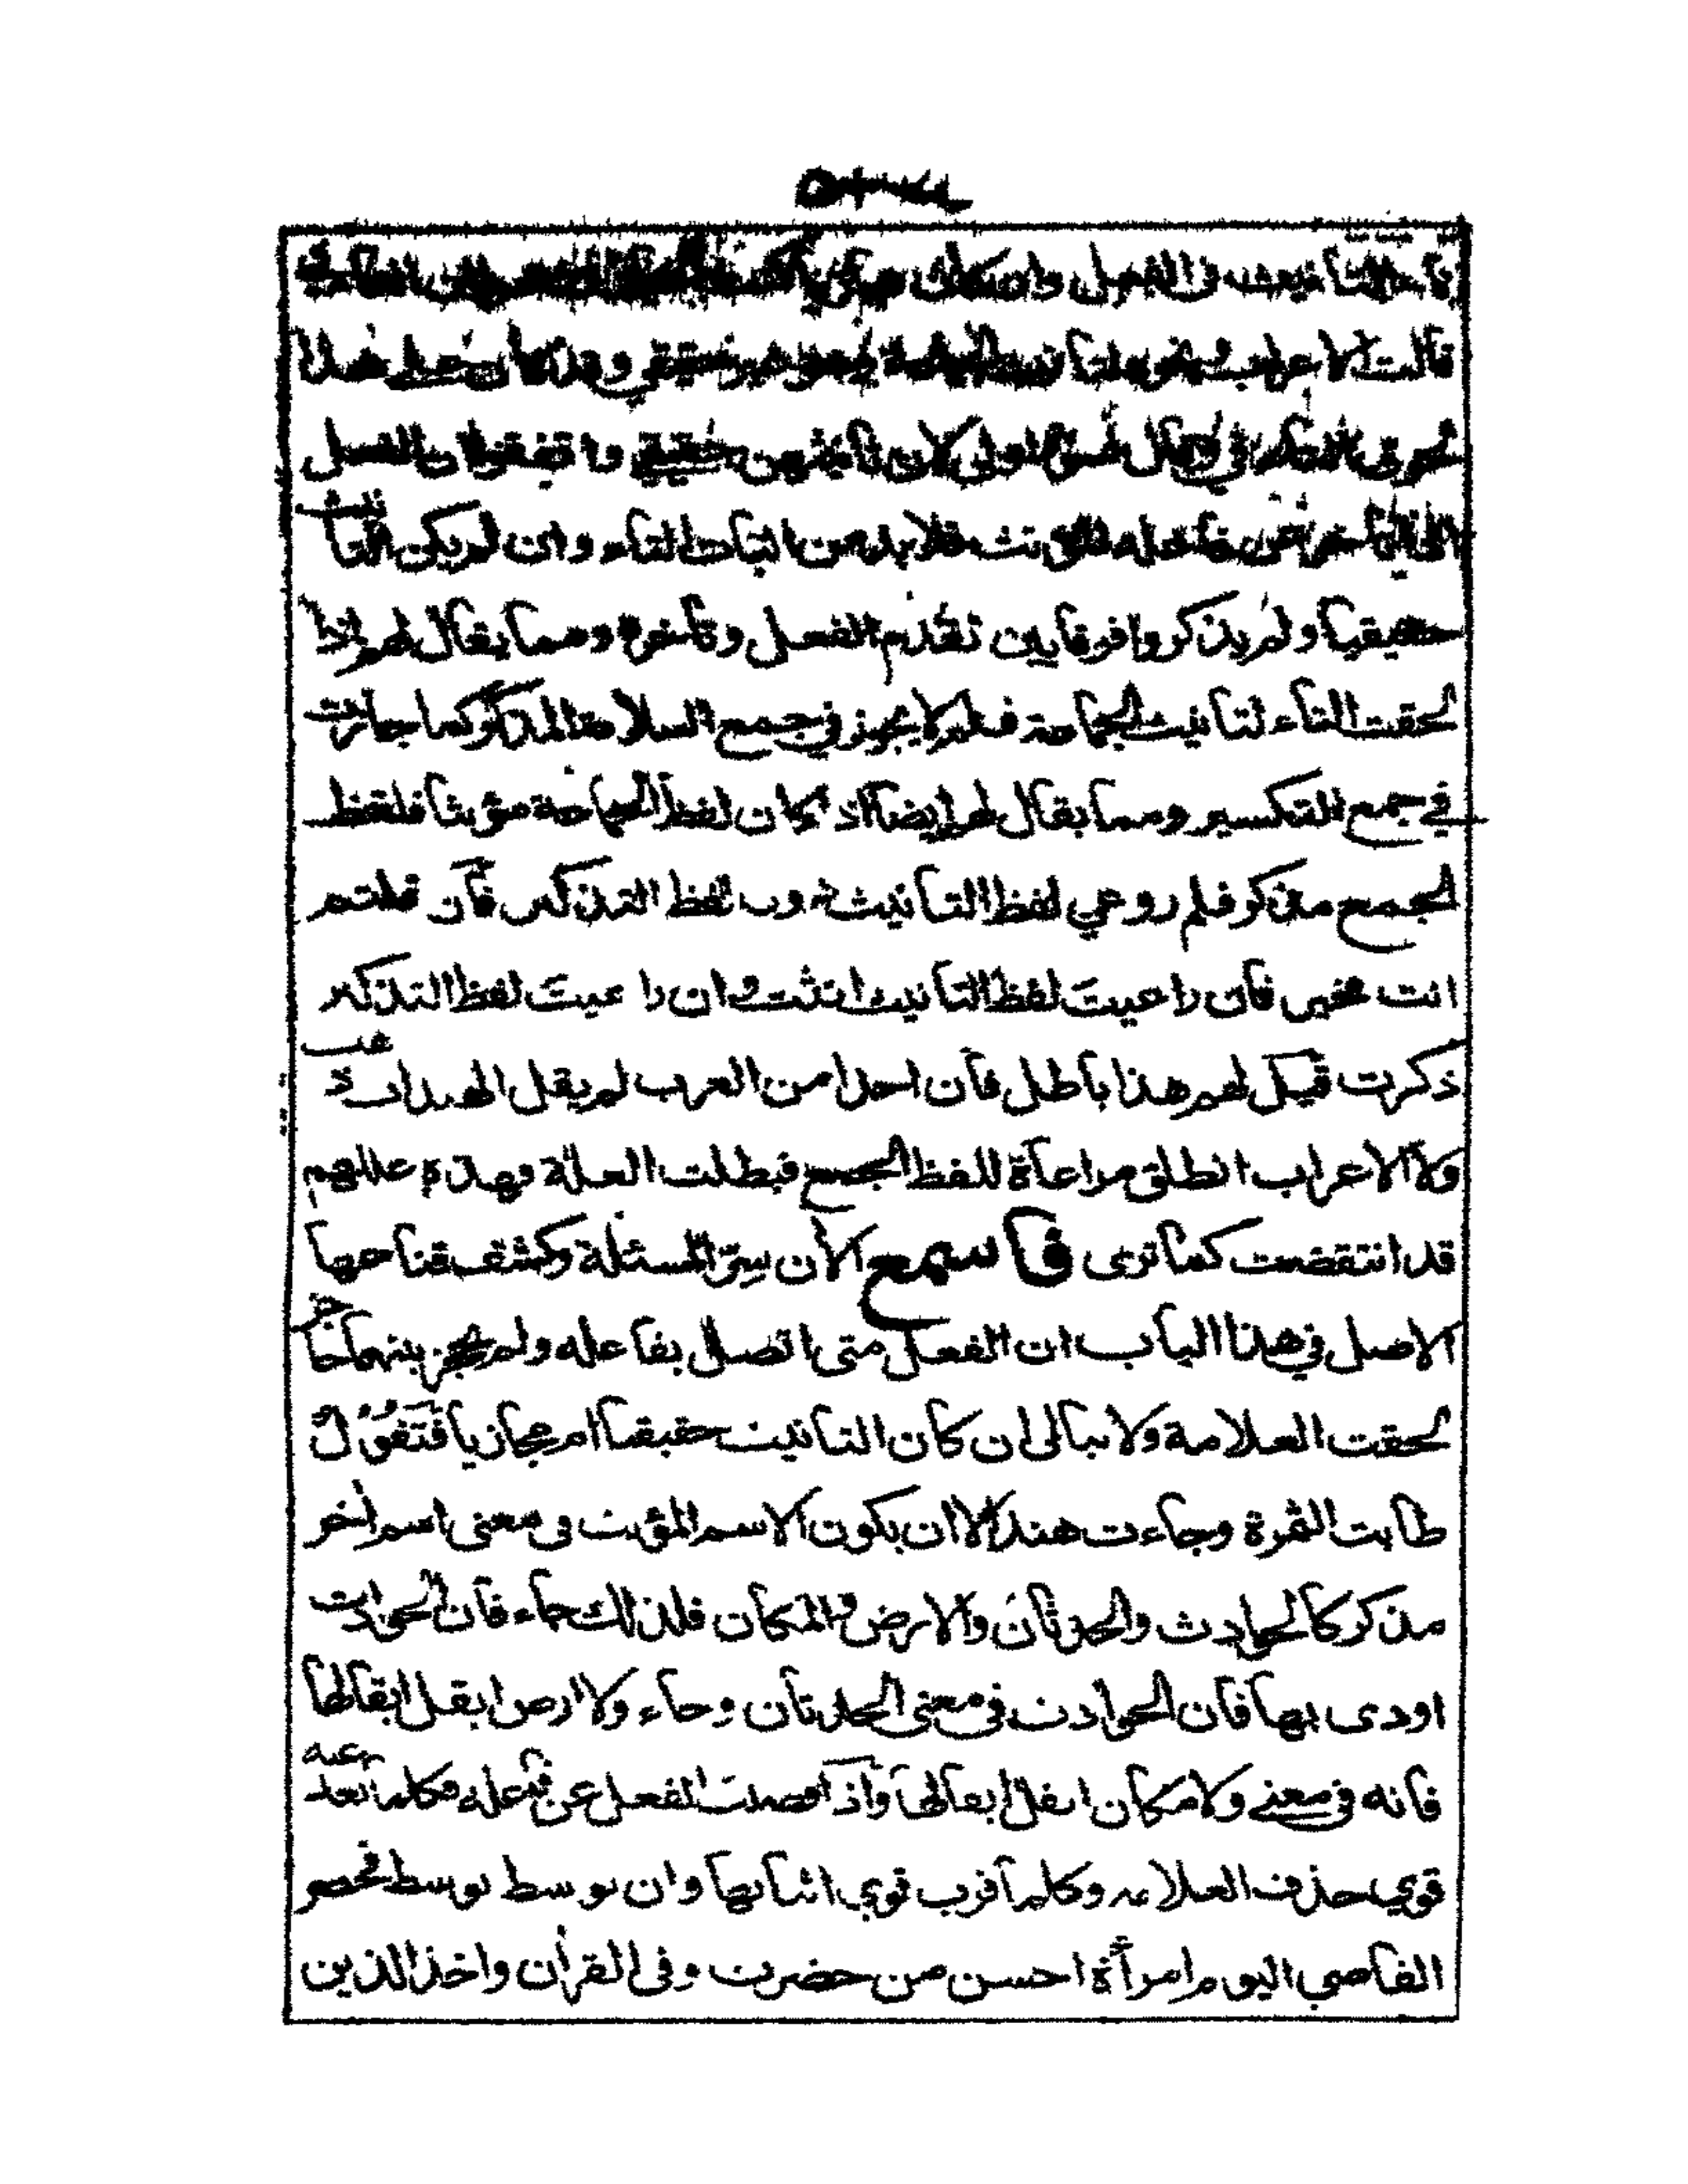 تاء التأنيث في الفعل وان كان
قالت الاعراب غير حقيقي وقد كان على هذا
لان تأنيثهن حقيقي واتفقوا ان الفعل
اذا تأخر عن فاعله المؤنث فلا بد من اثبات التاء وان لم يكن التأنيث
حقيقيا ولم يذكروا فرقا بين تقدم الفعل وتأخره ومما يقال لهم اذا
لحقت التاء لتأنيث الجماعة فلم لا يجوز في جمع السلامة المذكر كما جازت
في جمع التكسير ومما يقال لهم ايضا اذ كان لفظ الجماعة مؤنثا فلفظ
الجمع مذكر فلم روعي لفظ التأنيث دون لفظ التذكير فان قلتم
انت مخير فان راعيت لفظ التأنيث انثت وان راعيت لفظ التذكير
ذكرت قيل لهم هذا باطل فان احدا من العرب لم يقل الهندات ذهب
ولا الاعراب انطلق مراعاة للفظ الجمع فبطلت العلة وهذه عللهم
قد انتقضت كما ترى فاسمع الآن سر المسئلة وكشف قناعها
الاصل في هذا الباب ان الفعل متى اتصل بفاعله ولم يحجز بينهما حاجز
لحقت العلامة ولا نبالى ان كان التأنيث حقيقيا ام مجازيا فَتَقُوْلُ
طابت الثمرة وجاءت هند الا ان يكون الاسم المؤنث في معنى اسم آخر
مذكر كالحوادث والحدثان والارض والمكان فلذلك جاء فان الحوادث
اودى بها فان الحوادث في معنى الحدثان وجاء ولا ارض ابقل ابقالها
فانه في معنى ولا مكان ابقل ابقالها واذا فصلت الفعل عن فاعله فكلما بعد عنه
قوي حذف العلامة وكلما قرب قوي اثباتها وان توسط توسط فحضر
القاضي اليوم امرأة احسن من حضرت وفى القرأن واخذ الذين